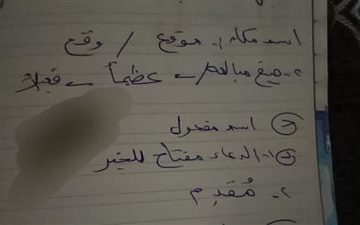 اسم مكان: موقع / وقع
٢- صيغ مبالغة ← عظيماً ←
٢ اسم مفعول
١- الدعاء مفتاح للخير
٢- مُقدِم